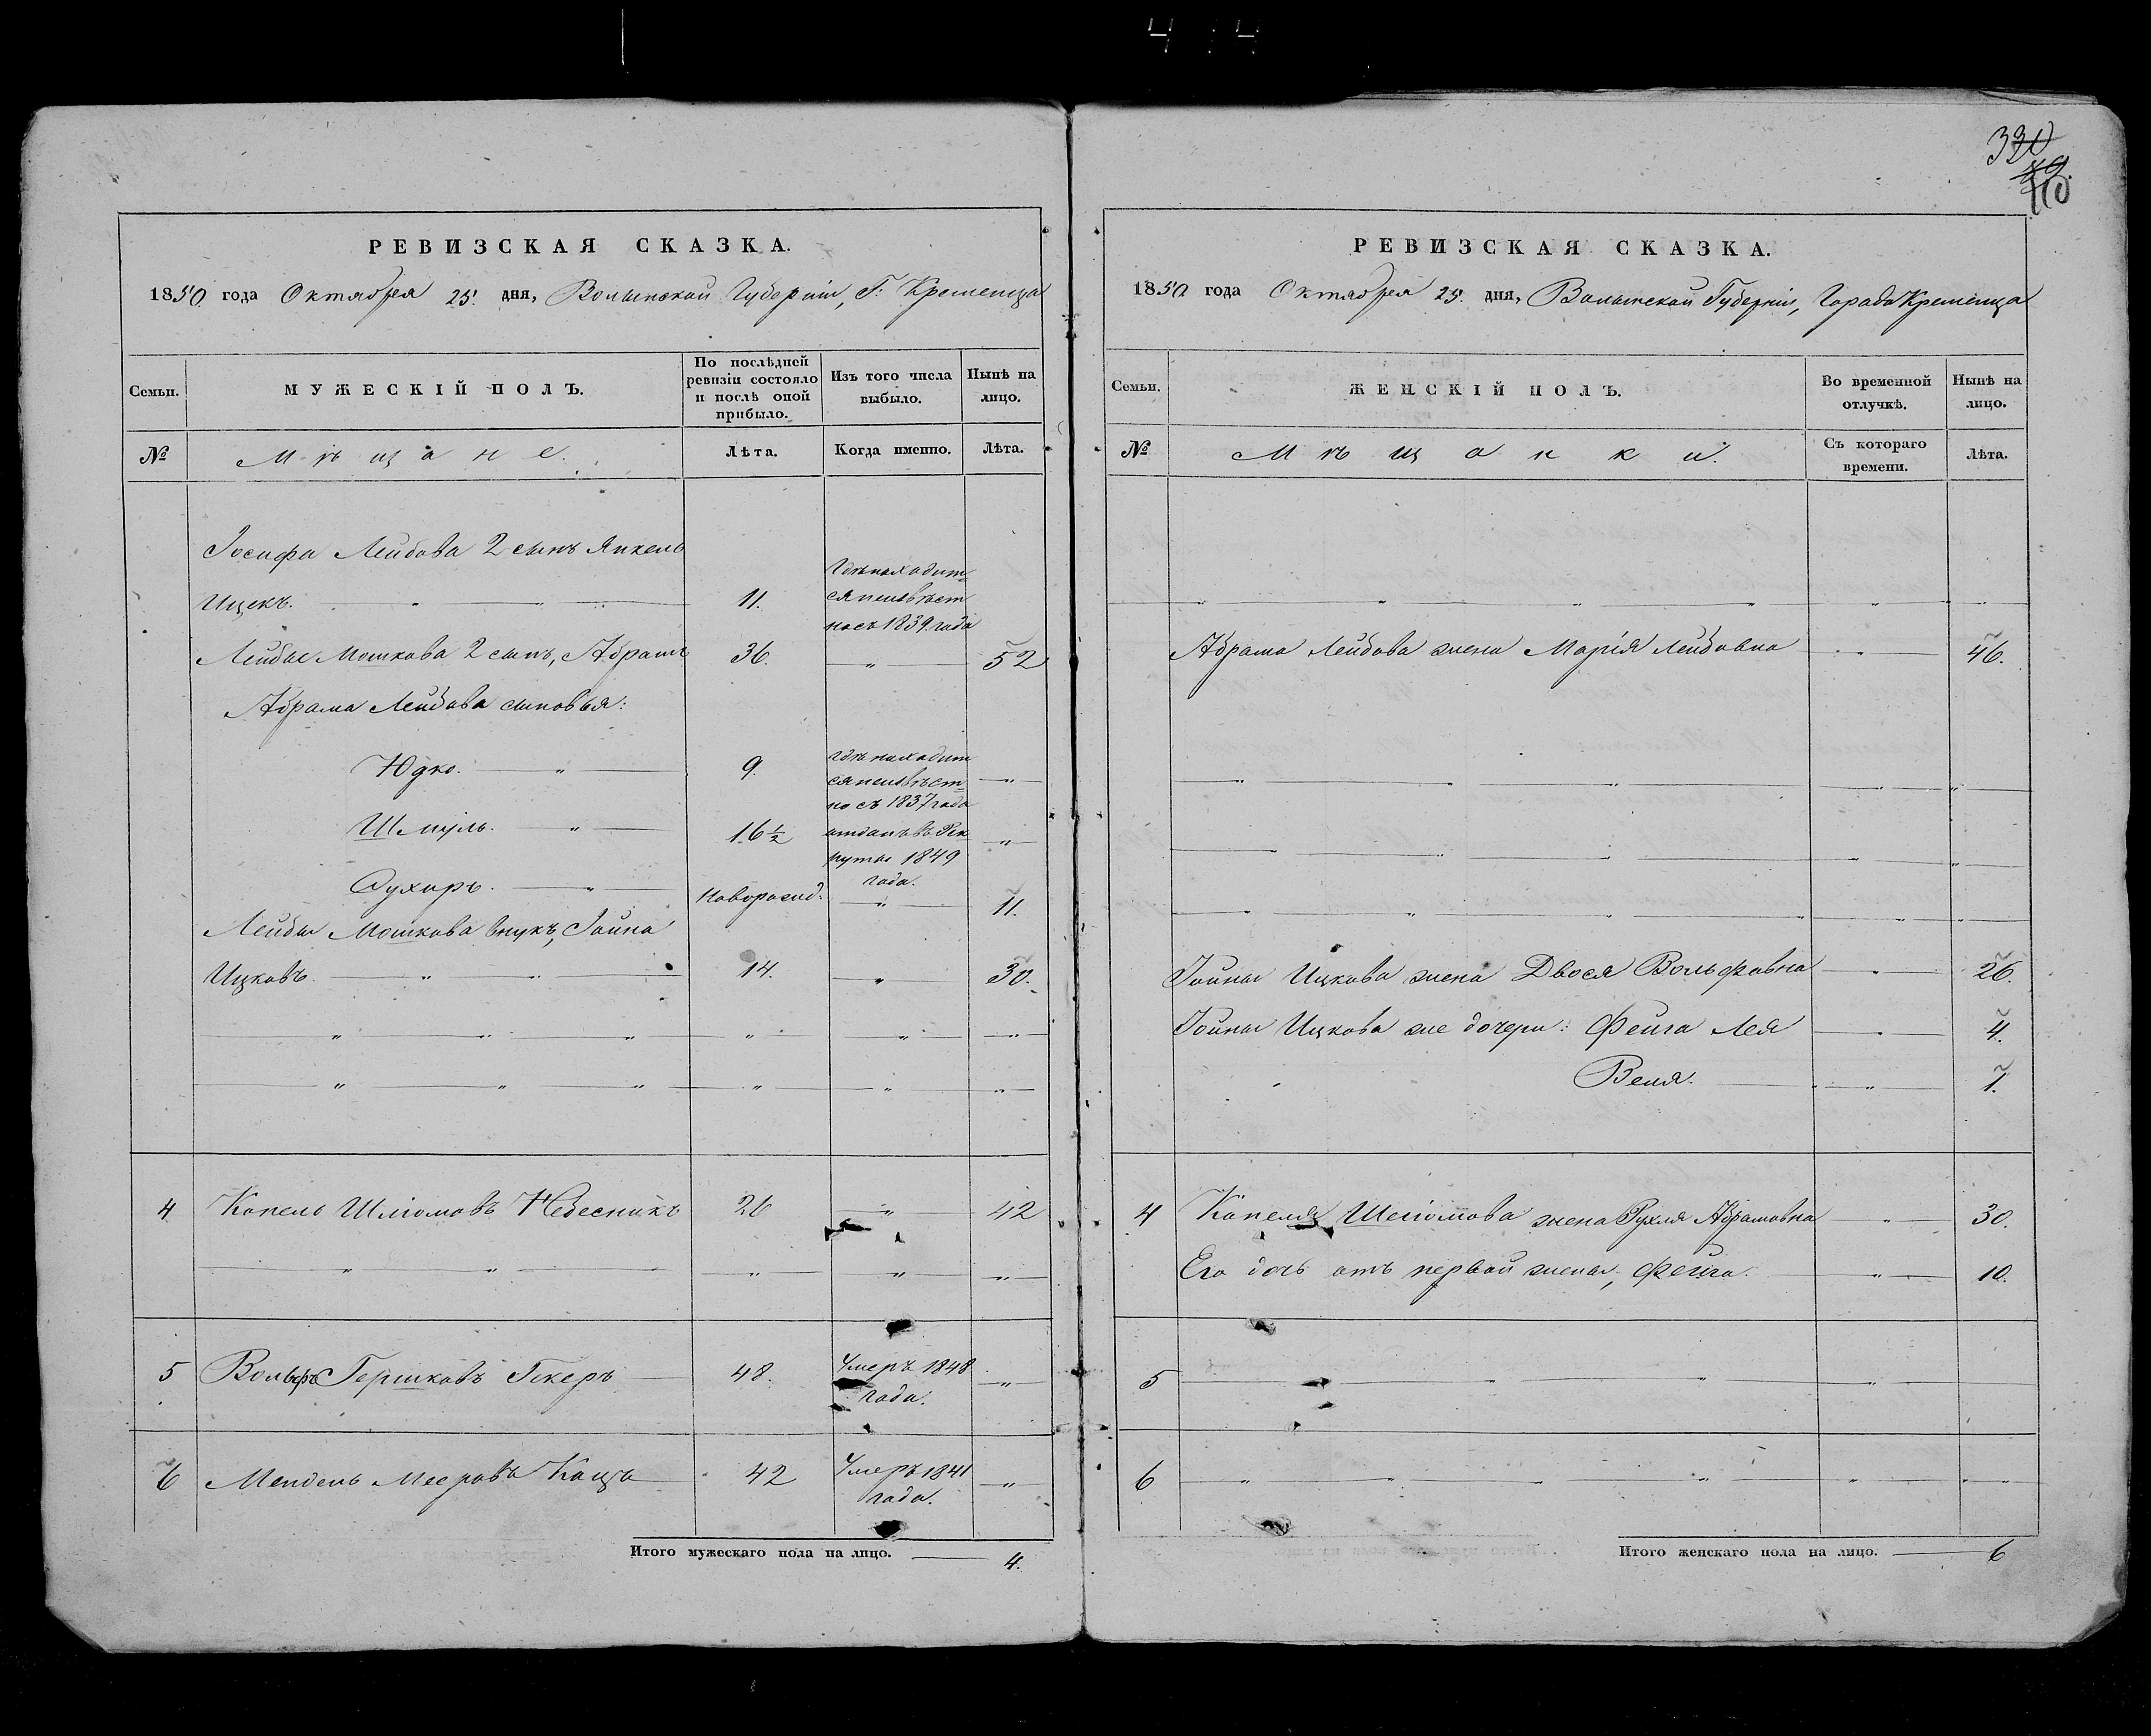 4 4
320
110
РЕВИЗСКАЯ СКАЗКА.
1850 года Октября 25. дня, Волынской Губерніи, Г. Кременца
Семьи.
МУЖЕСКІЙ ПОЛЪ.
По послѣдней ревизіи состояло и послѣ оной прибыло.
Изъ того числа выбыло.
Нынѣ на лицо.
№
Мѣщане.
Лѣта.
Когда именно.
Лѣта.
Іосифа Лейбова 2 сынъ Янкель
Ицекъ. 11. Гдѣ находит=
ся неизвѣст
но съ 1839. года
Лейбы Мошкова 2 сынъ, Абрамъ 36. 52
Абрама Лейбова сыновья:
Юдко. 9. Гдѣ находит
ся неизвѣст=
но съ 1837 года
Шмуль. 16 ½ отданъ въ Рек
руты 1849
года.
Сухиръ. новорожд. 11.
Лейбы Мошкова внукъ, Іойна
Ицковъ 14. 30.
4 Копель Шліомовъ Небесникъ 26 42
5 Вольфъ Гершковъ Гекеръ 48. Умеръ 1848
года.
6 Мендель Мееровъ Кацъ 42 Умеръ 1841
года.
Итого мужескаго пола на лицо. 4.
РЕВИЗСКАЯ СКАЗКА.
1850 года Октября 25. дня, Волынской Губерніи, Города Кременца
Семьи.
ЖЕНСКІЙ ПОЛЪ.
Во временной отлучкѣ.
Нынѣ на лицо.
№
Мѣщанки.
Съ котораго времени.
Лѣта.
Абрама Лейбова жена Марія Лейбовна 46.
Іойны Ицкова жена Двося Вольфовна 26.
Іойны Ицкова же дочери: Фейга Лея 4.
Веля. 1.
4 Копеля Шліомова жена Рухля Абрамовна 30.
Его дочь отъ первой жены, Фейга. 10.
5
6
Итого женскаго пола на лицо. 6